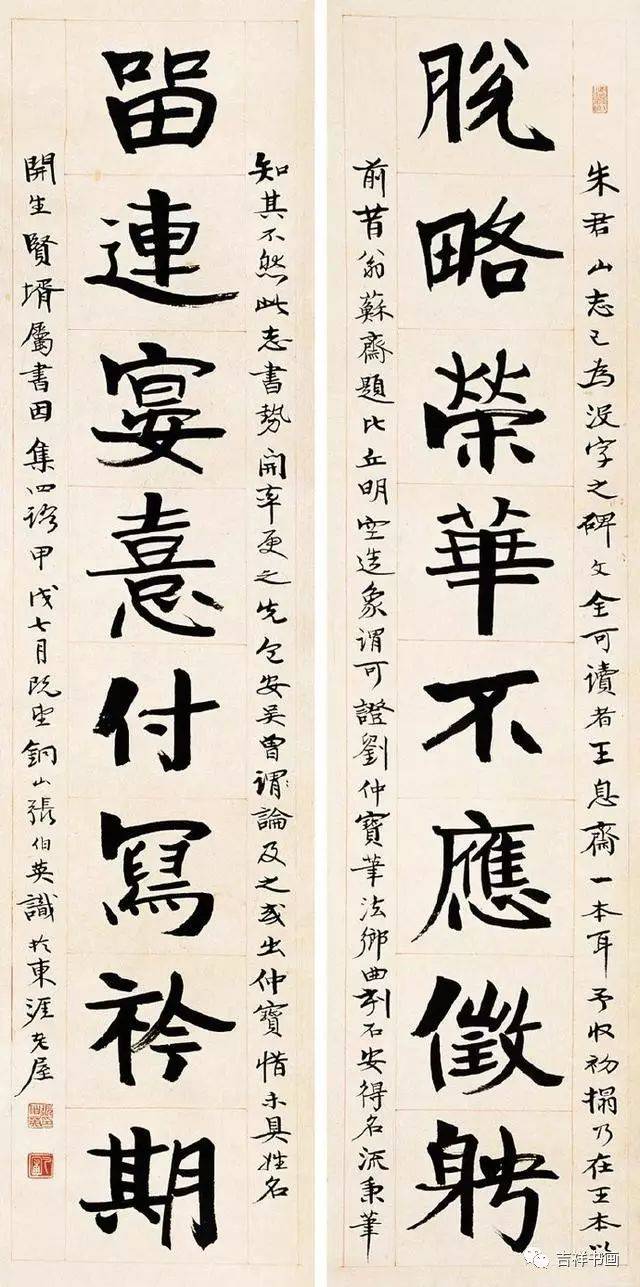 脫略榮華不應徵聘
朱君山志已為沒字之碑文全可讀者王息齋一本耳予收初搨乃在王本以
前昔翁蘇齋題比丘明空造象謂可證劉仲寶筆法鄉曲刻石安得名流秉筆
留連宴憙付寫衿期
知其不然此志書勢開率更之先包安吳曾謂論及之或出仲寶惜未具姓名
開生賢壻屬書因集四語甲戌七月既望銅山張伯英識於東涯老屋
吉祥书画